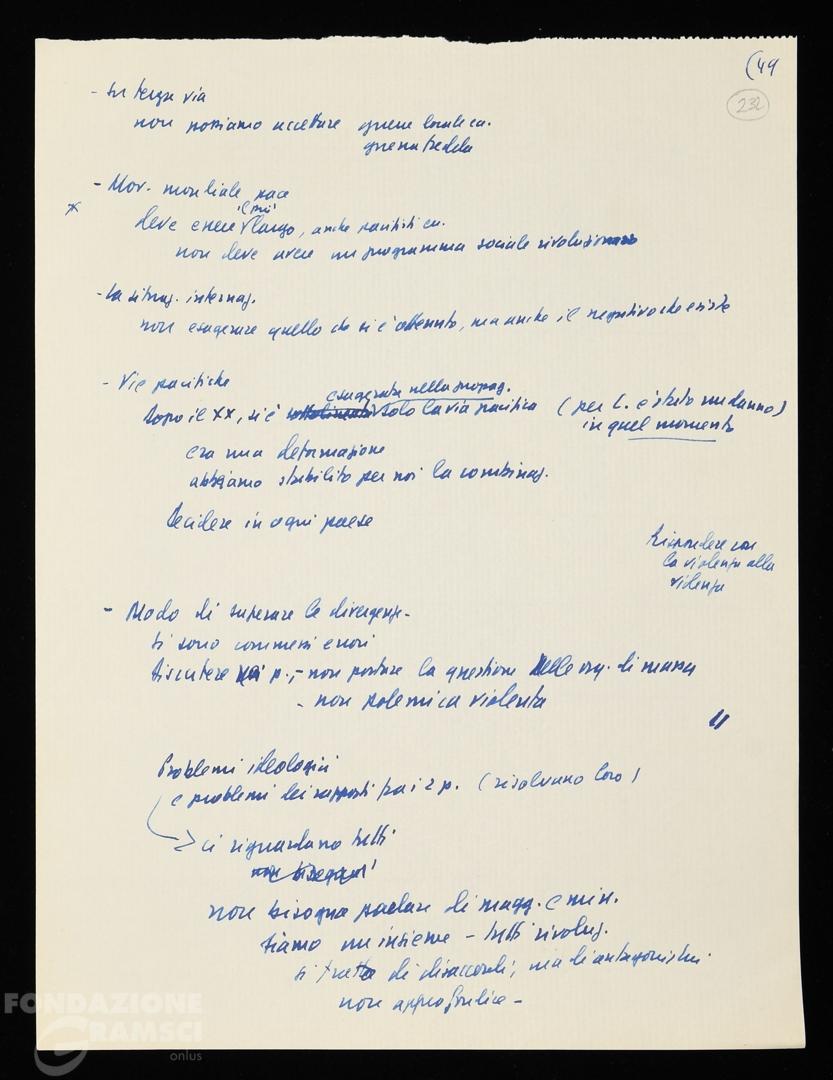 (49
232
- su terza via
non possiamo accettare guerre locali ca.
guerra fredda
- Mov. mondiale pace
il più
* deve essere largo, anche pacifisti ca.
non deve avere un programma sociale rivoluzionario
- La situaz. internaz.
non esagerare quello che si è ottenuto, ma anche il negativo che esiste
- Vie pacifiche
esagerata nella propag.
Dopo il XX, si è sottolineata solo la via pacifica (per L. è stato un danno)
in quel momento
era una deformazione
abbiamo stabilito per noi la combinaz.
Decidere in ogni paese
Rispondere con
la violenza alla
violenza
- Modo di superare le divergenze -
si sono commessi errori
Discutere p., - non portare la questione nelle org. di massa
- non polemica violenta
Problemi ideologici
e problemi dei rapporti fra i 2 p. (risolvano loro)
→ ci riguardano tutti
non bisogna
non bisogna parlare di magg. e min.
siamo un insieme - tutti rivoluz.
si tratta di disaccordi,
non approfondire -
FONDAZIONE
GRAMSCI
onlus